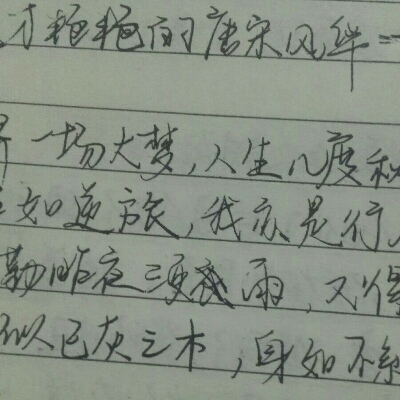 才艳艳的唐宋风华一
一场大梦,人生几度秋
如逆旅,我亦是行
勒昨夜三更夜雨,又得
似已灰之木,身如不系